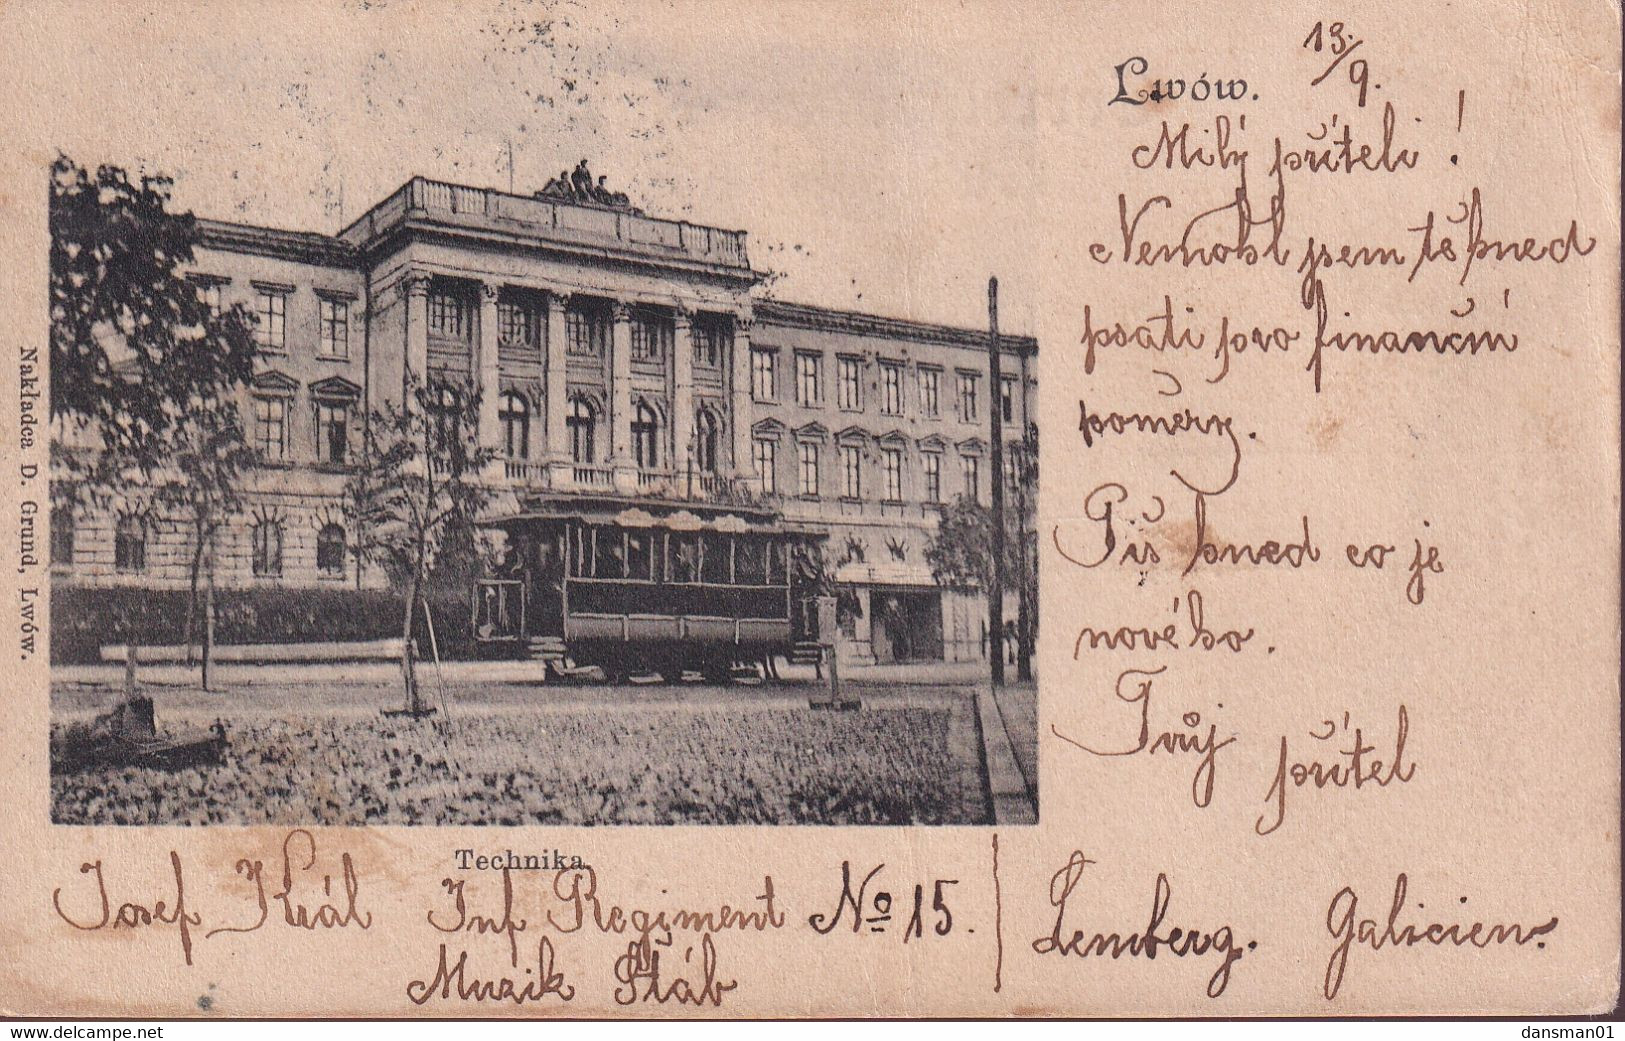 Lwów. 13./9.
Milý příteli!
Nemohl jsem tě hned
psáti pro finanční
poměry.
Piš hned co je
nového.
Tvůj
přítel
Nakładca D. Grund, Lwów.
Technika.
Josef Král Inf Regiment No 15.
Muzik Štáb
Lemberg. Galizien.
dansman01
https://www.delcampe.net